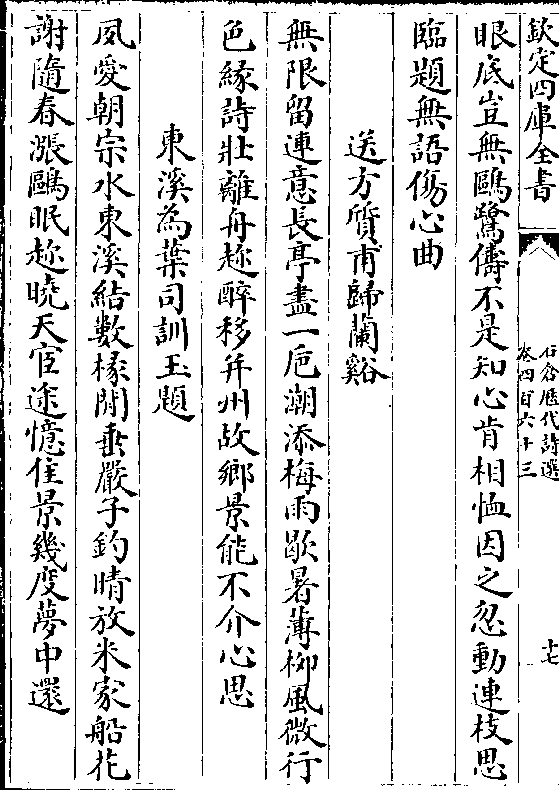 欽定四庫全書
石倉歴代詩選
卷四百六十三
十七
眼底豈無鷗鷺儔不是知心肯相恤因之忽動連枝思
臨題無語傷心曲
送方質甫歸蘭谿
無限留連意長亭盡一巵潮添梅雨歇暑薄柳風微行
色縁詩壯離舟趂醉移并州故鄉景能不介心思
東溪為葉司訓玉題
夙愛朝宗水東溪結數椽閒垂嚴子釣晴放米家船花
謝隨春漲鷗眠趂曉天宦途憶佳景幾度夢中還